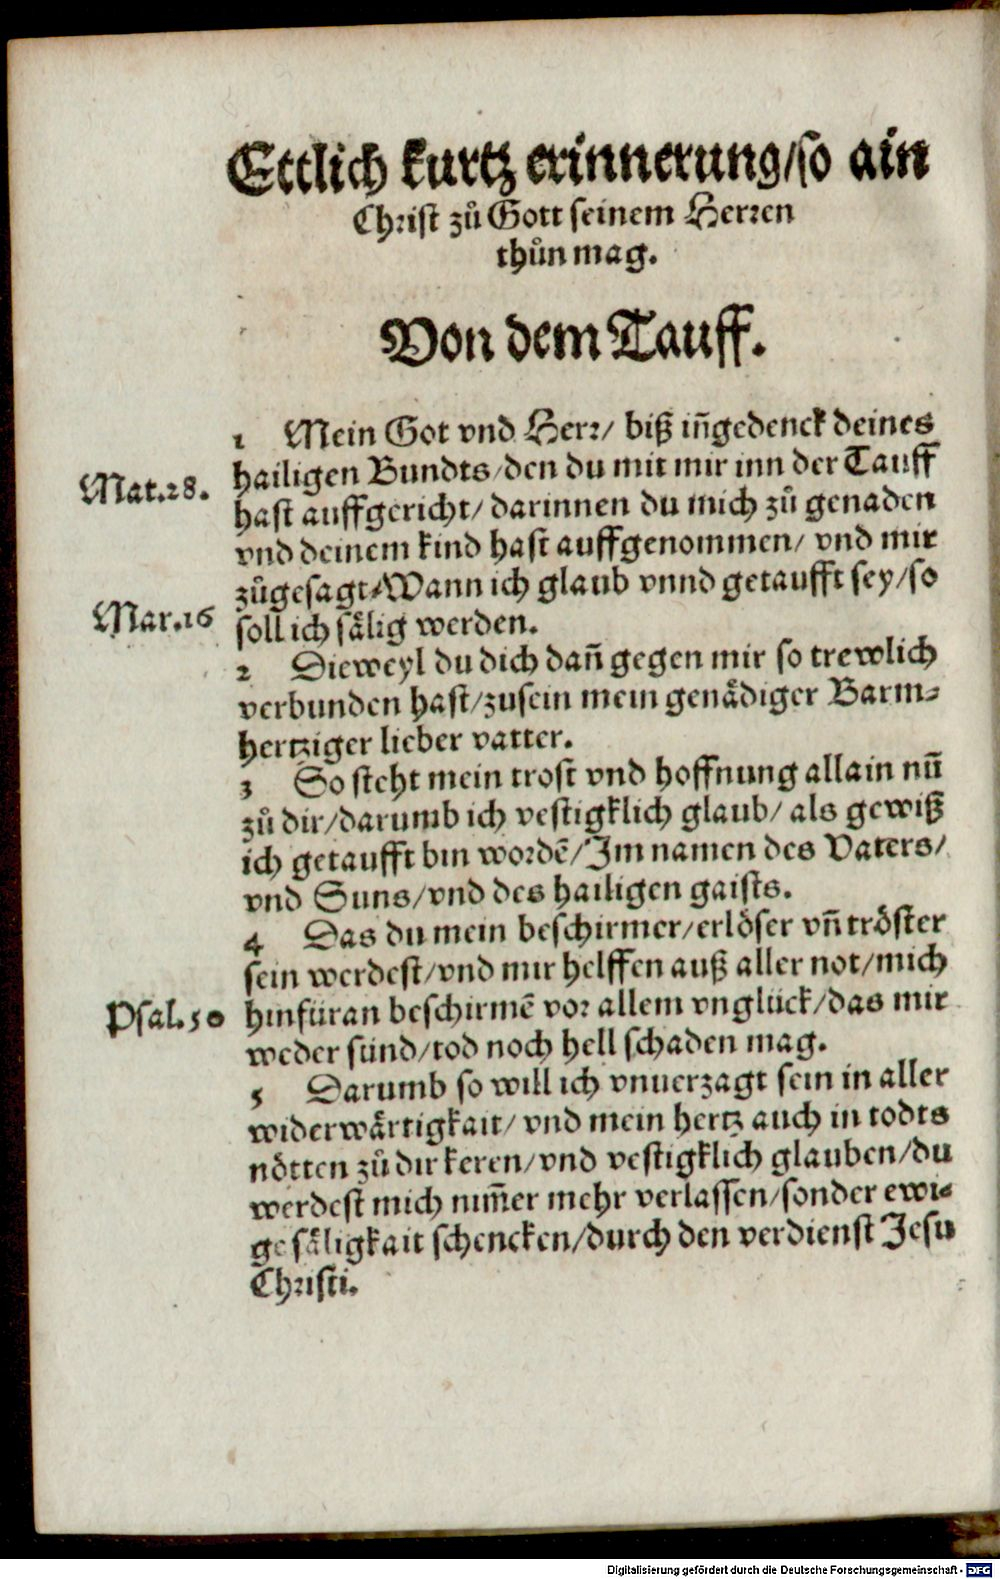 Ettlich kurtz erinnerung/so ain
Christ zů Gott seinem Herren
thůn mag.
Von dem Tauff.
1 Mein Got vnd Herr/ biß iñgedenck deines
hailigen Bundts/den du mit mir inn der Tauff
Mat.28.
hast auffgericht/ darinnen du mich zů genaden
vnd deinem kind hast auffgenommen/ vnd mir
zůgesagt/Wann ich glaub vnnd getaufft sey/so
Mar.16
soll ich sålig werden.
2 Dieweyl du dich dañ gegen mir so trewlich
verbunden hast/zusein mein genådiger Barm-
hertziger lieber vatter.
3 So steht mein trost vnd hoffnung allain nũ
zů dir/darumb ich vestigklich glaub/ als gewiß
ich getaufft bin wordẽ/Im namen des Vaters/
vnd Suns/vnd des hailigen gaists.
4 Das du mein beschirmer/erlöser vñ tröster
sein werdest/vnd mir helffen auß aller not/mich
Psal.50
hinfüran beschirmẽ vor allem vnglück/das mir
weder sünd/tod noch hell schaden mag.
5 Darumb so will ich vnuerzagt sein in aller
widerwårtigkait/ vnd mein hertz auch in todts
nötten zů dir keren/vnd vestigklich glauben/du
werdest mich nim̃er mehr verlassen/sonder ewi-
ge såligkait schencken/durch den verdienst Jesu
Christi.
Digitalisierung gefördert durch die Deutsche Forschungsgemeinschaft - DFG